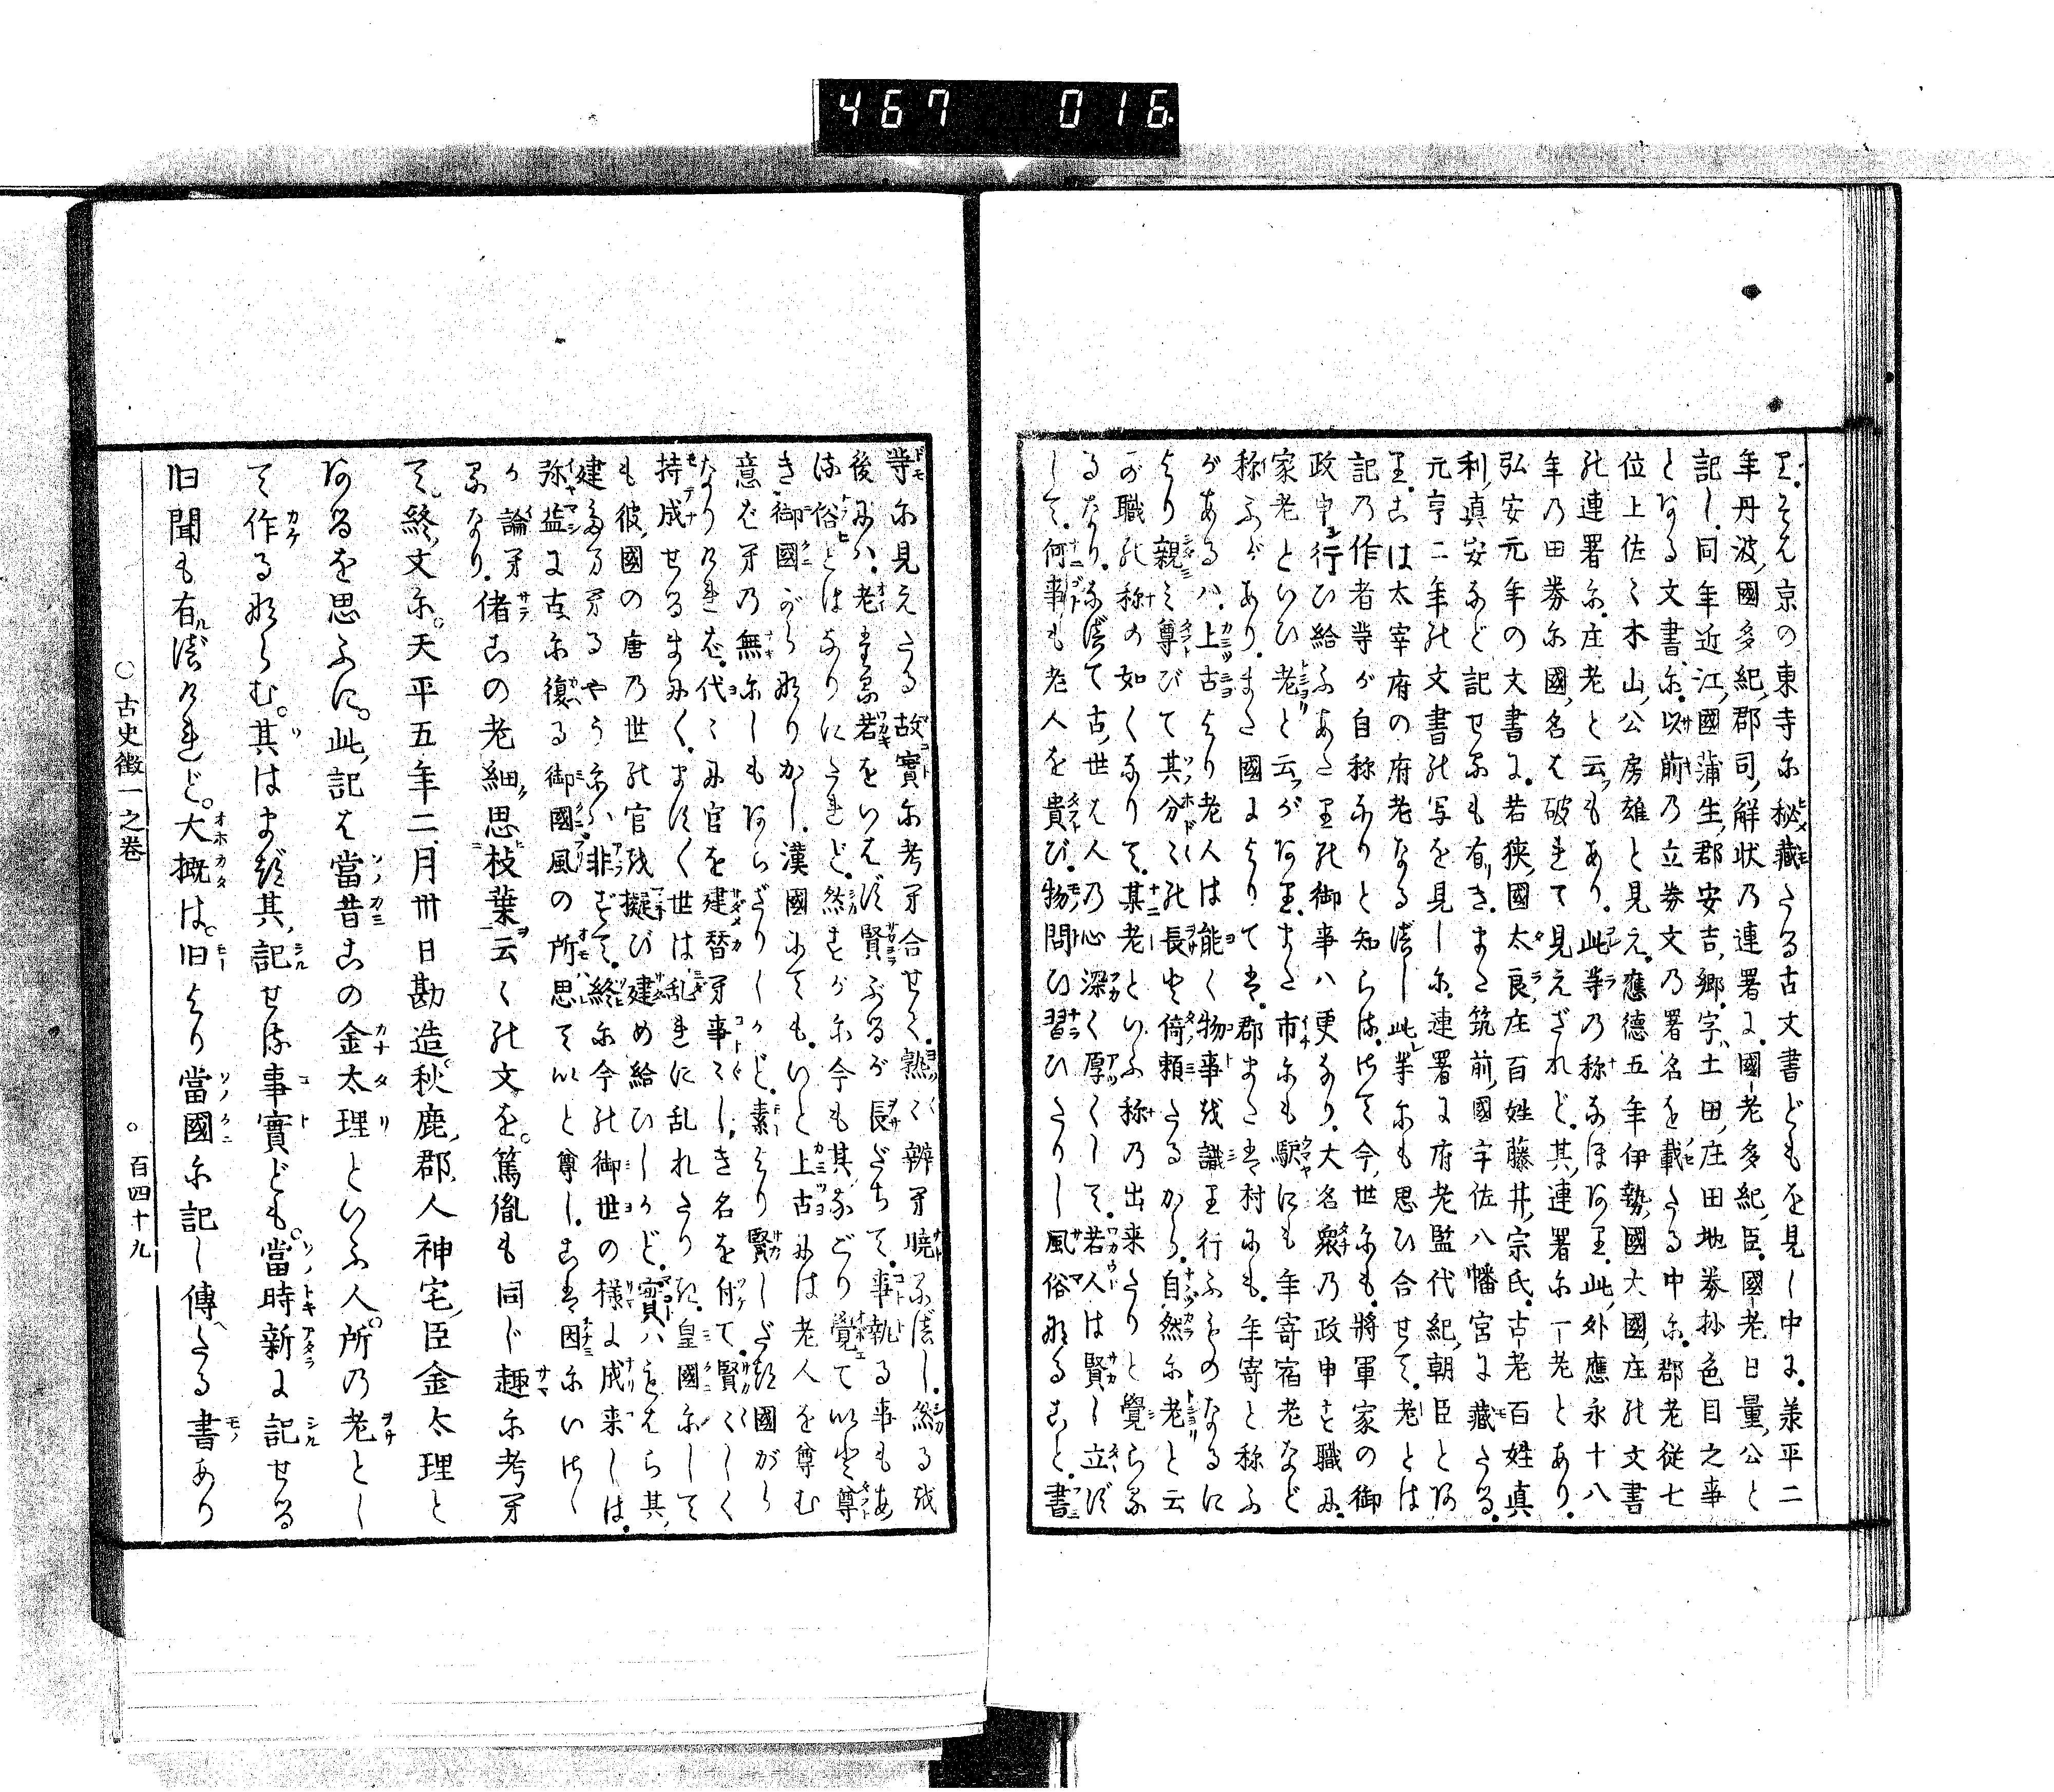 467 016
里。そは京の東寺尓秘藏たる古文書どもを見し中に。承平二
年丹波國多紀郡司解状乃連署に。國老多紀臣。國老日量公と
記し。同年近江國蒲生郡安吉郷。字土田庄田地券抄色目之事
となる文書尓。以前乃立券文乃署名を載たる中尓。郡老従七
位上佐々木山公房雄と見え。應徳五年伊勢國大國庄乃文書
乃連署尓。庄老と云もあり。此等乃称なほ阿里。此外應永十八
年乃田券尓國名は破れて見えざれど。其連署尓一老とあり。
弘安元年の文書に。若狭國太良庄百姓藤井宗氏。古老百姓真
利真安など記せるも有き。また筑前國宇佐八幡宮に藏たる。
元亨二年乃文書乃写を見し尓。連署に府老監代紀朝臣と阿
里。こは太宰府の府老なるべし。此等尓も思ひ合せて。老とは
記乃作者等が自称なりと知らる。さて今世尓も。將軍家の御
政申行ひ給ふあたり乃御事ハ更なり。大名衆乃政申を職に。
家老といひ老と云が阿里。また市尓も駅にも年寄宿老など
称ふがあり。また國によりては。郡また村にも。年寄と称ふ
があるハ。上古より老人は能く物事を識り行ふものなるに
より親み尊びて其分々乃長と倚頼たるから。自然尓老と云
が職乃称の如くなりて。某老といふ称乃出来たりと覺らる
るなり。すべて古世は人乃心深く厚くして。若人は賢し立ず
して。何事も老人を貴び。物問ひ習ひたりし風俗なること。書
等尓見えたる故實尓考へ合せて。熟く辨へ曉るべし。然るを
後にハ。老たる若きをいはず賢ぶるが長だちて。事執る事もあ
る俗とはなりにたれど。然すが尓今も其なごり覺ていと尊
き御國がらなりかし。漢國にても。いと上古には老人を尊む
意ばへ乃無尓しも阿らざりしかど。素より賢しだつ國がら
なりければ。代々に官を建替へ事々しき名を付て。賢々しく
持成せるまにく。ますく世は乱れに乱れたりき。皇國尓して
も彼國の唐乃世乃官を擬び建め給ひしかど。實ハもはら其
建たまへるやうなるハ非ずて。終尓今乃御世の様に成来しは。
弥益に古尓復る御國風の所思ていと尊し。こは因尓いさゝ
か論へるなり。偖この老細思枝葉云々乃文を。篤胤も同じ趣尓考へ
て。終文尓。天平五年二月卅日勘造。秋鹿郡人神宅臣金太理と
阿るを思ふに。此記は當昔この金太理といふ人。所乃老とし
て作るならむ。其はまづ其記せる事實ども。當時新に記せる
旧聞も有べけれど。大概は。旧より當國尓記し傳へたる書あり
○古史徴一之巻 ○百四十九